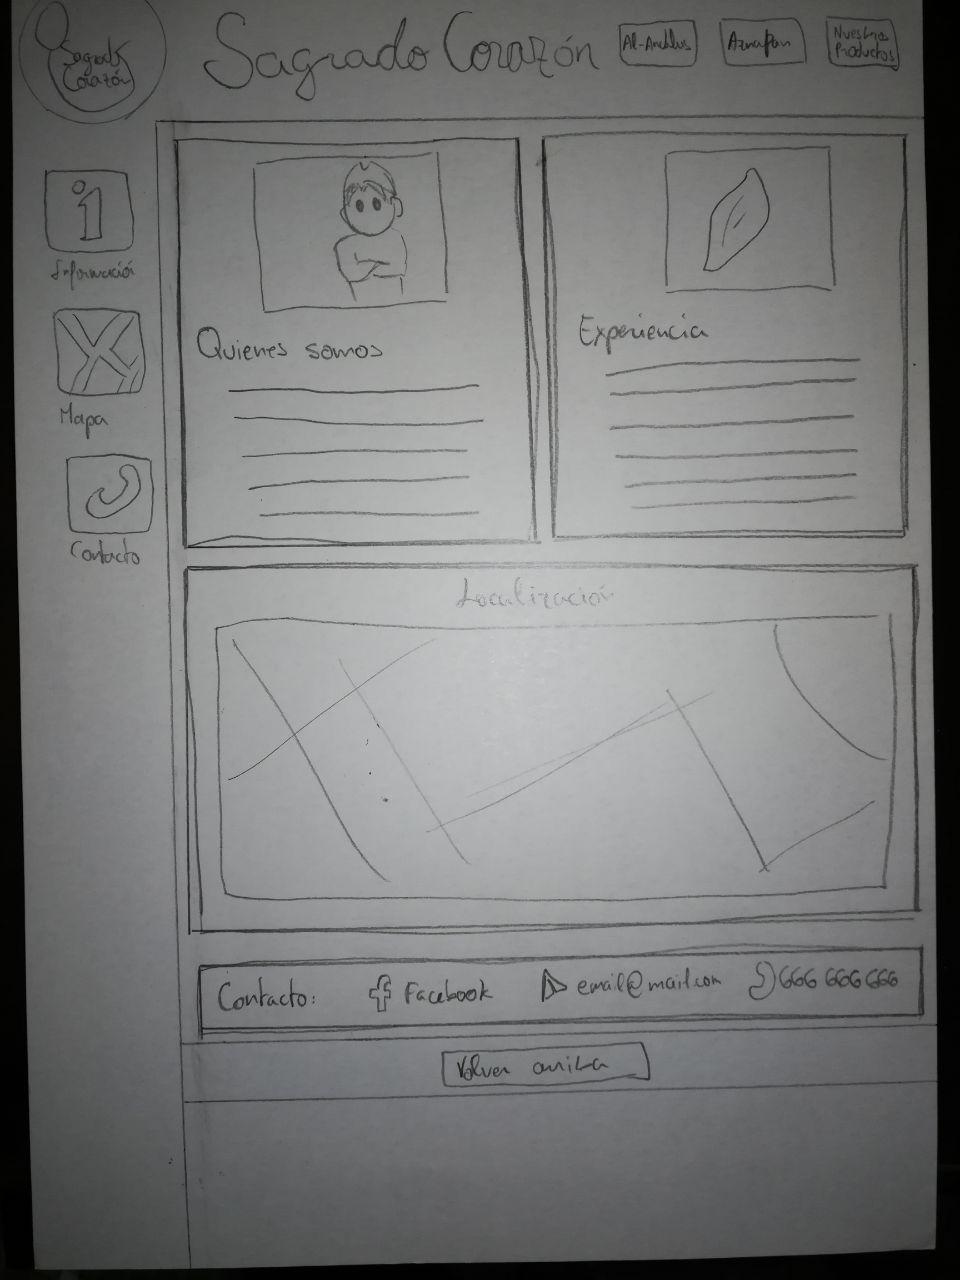 Sagrado
Corazón
Sagrado Corazón
Al-Andalus
AznaPan
Nuestros
Productos
Información
Mapa
Contacto
Quienes somos
Experiencia
Localización
Contacto:
Facebook
email@mail.com
666 666 666
Volver arriba